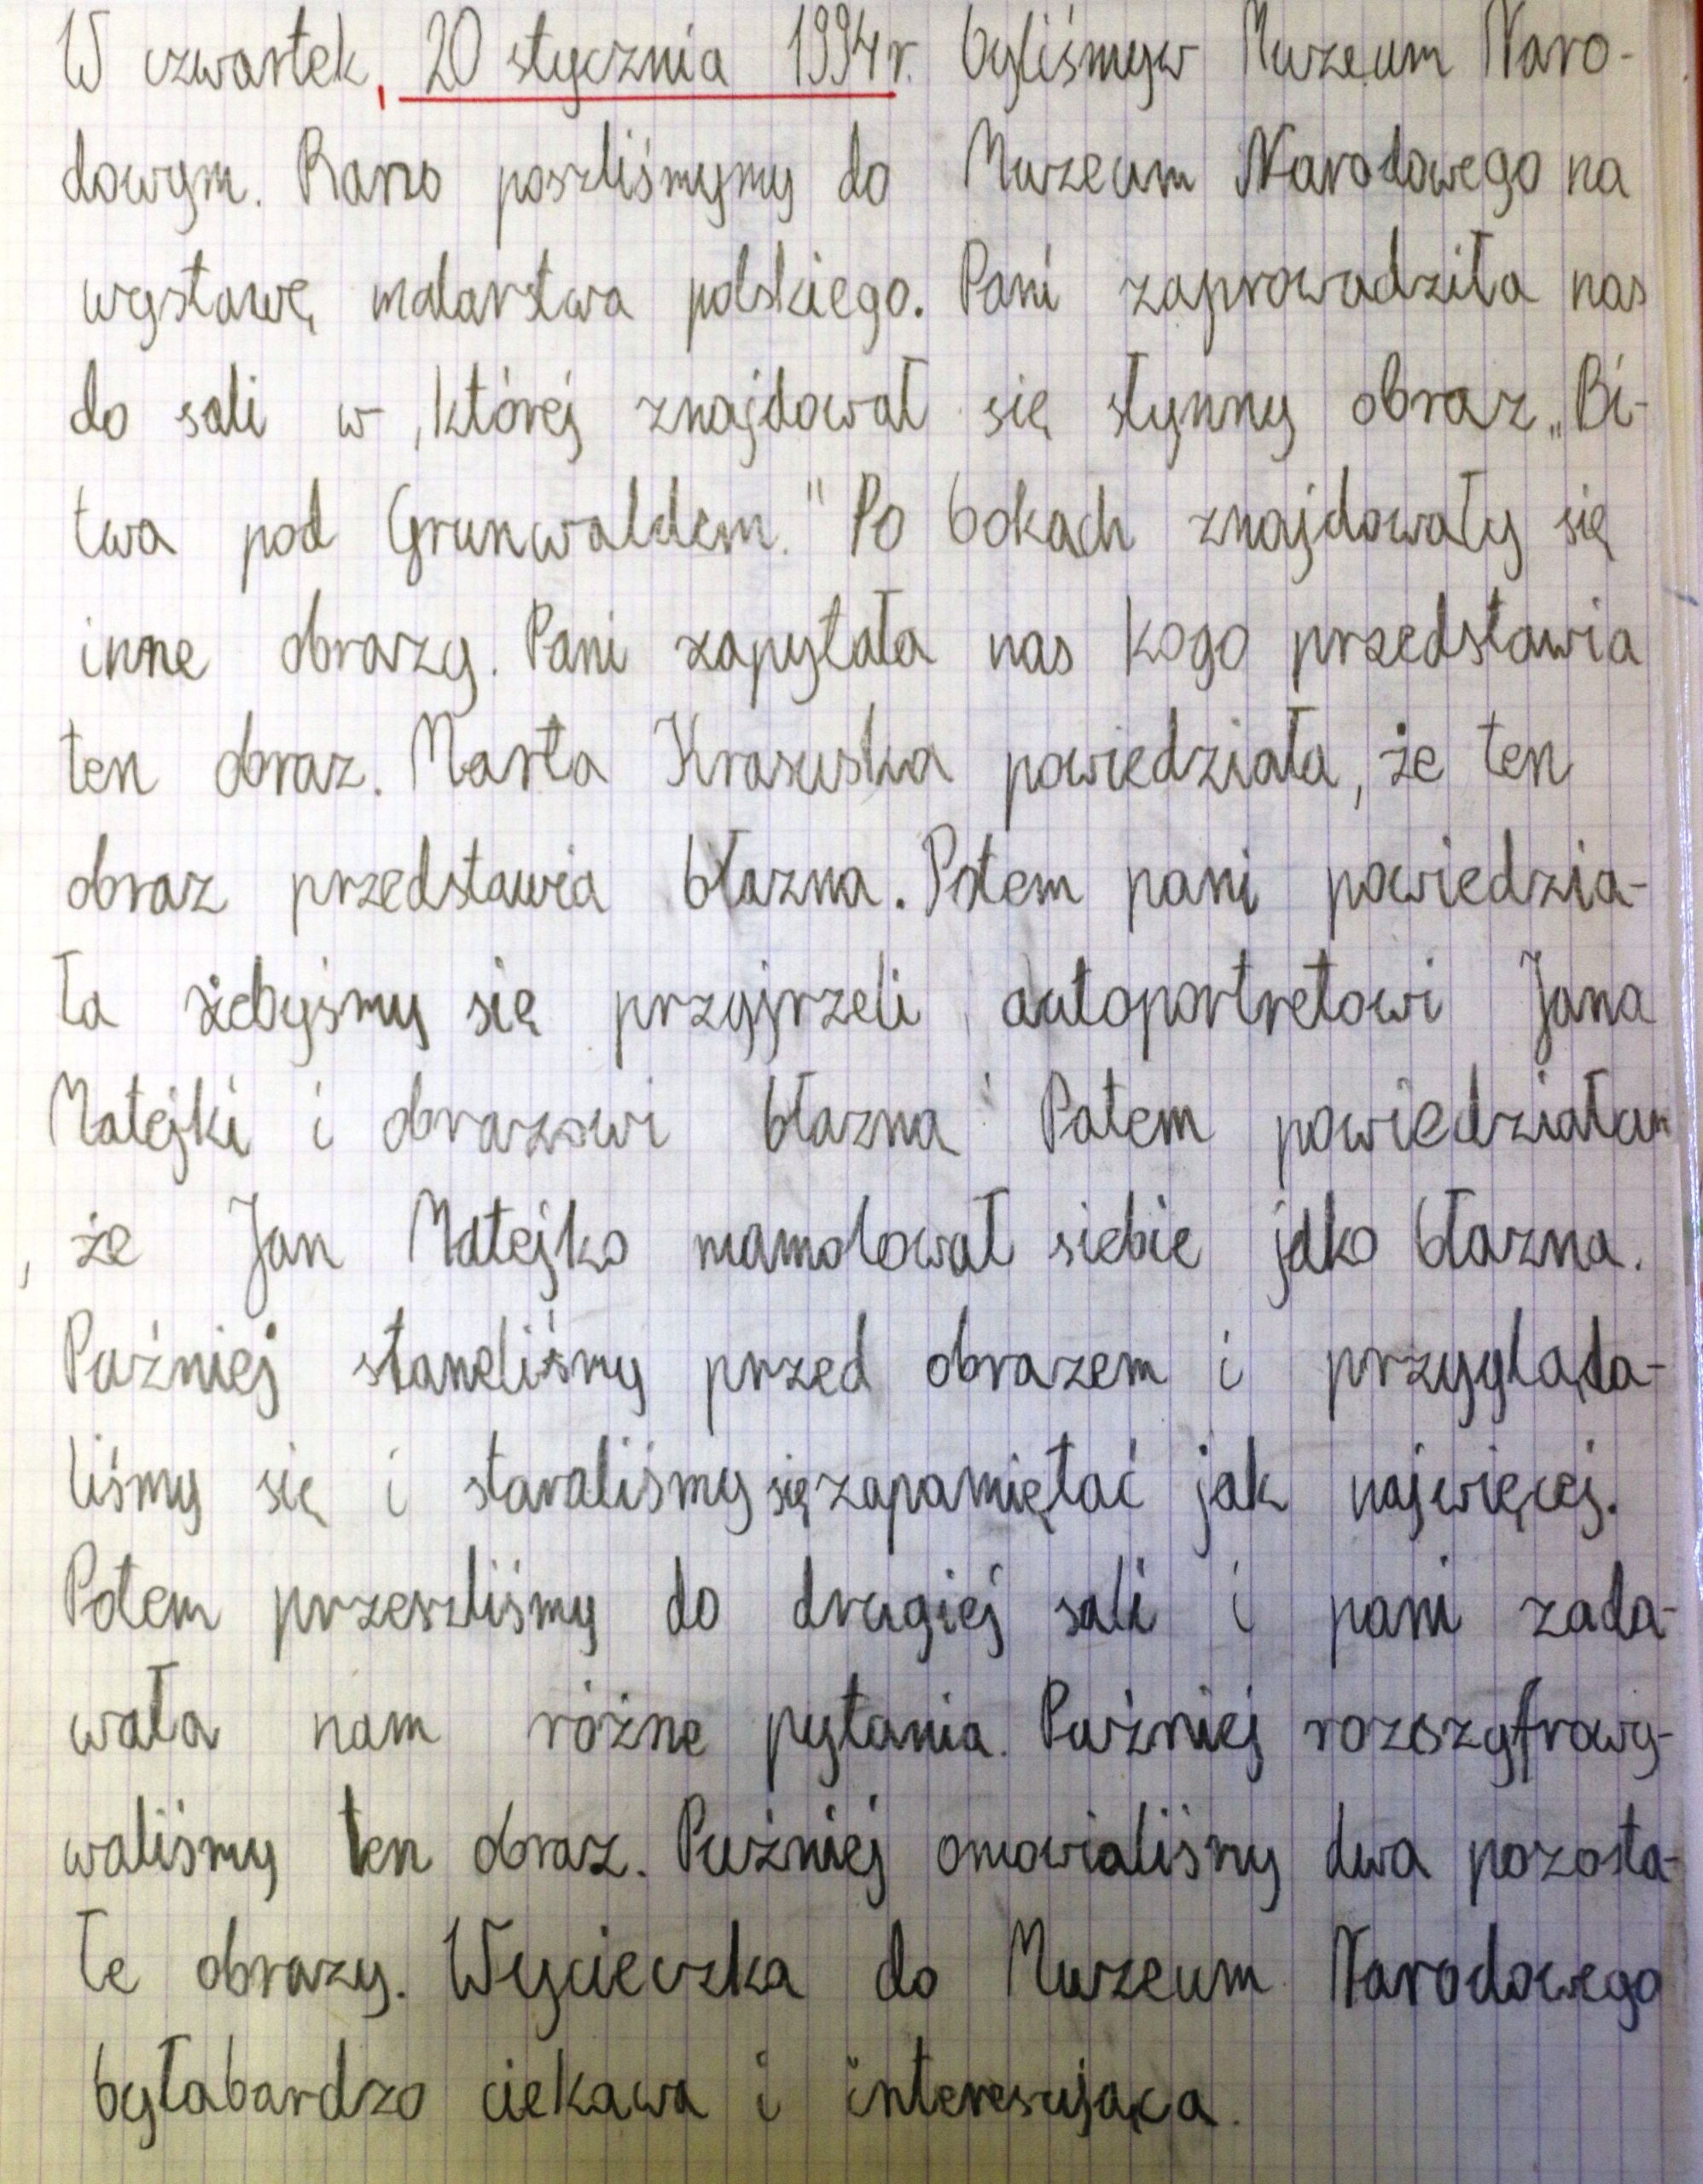 W czwartek, 20 stycznia 1994r. byliśmyw Muzeum Naro-
dowym. Rano poszliśmymy do Muzeum Narodowego na
wystawę malarstwa polskiego. Pani zaprowadziła nas
do sali w ,której znajdował się słynny obraz „Bi-
twa pod Grunwaldem." Po bokach znajdowały się
inne obrazy. Pani zapytała nas kogo przedstawia
ten obraz. Marta Krasuska powiedziała, że ten
obraz przedstawia błazna. Potem pani powiedzia-
ła żebyśmy się przyjrzeli autoportretowi Jana
Matejki i obrazowi błazna Potem powiedziałam
, że Jan Matejko namalował siebie jako błazna.
Puźniej staneliśmy przed obrazem i przygląda-
liśmy się i staraliśmy się zapamiętać jak najwięcej.
Potem przeszliśmy do drugiej sali i pani zada-
wała nam różne pytania. Puźniej rozszyfrowy-
waliśmy ten obraz. Puźniej omowialiśmy dwa pozosta-
łe obrazy. Wycieczka do Muzeum Narodowego
byłabardzo ciekawa i interesująca.